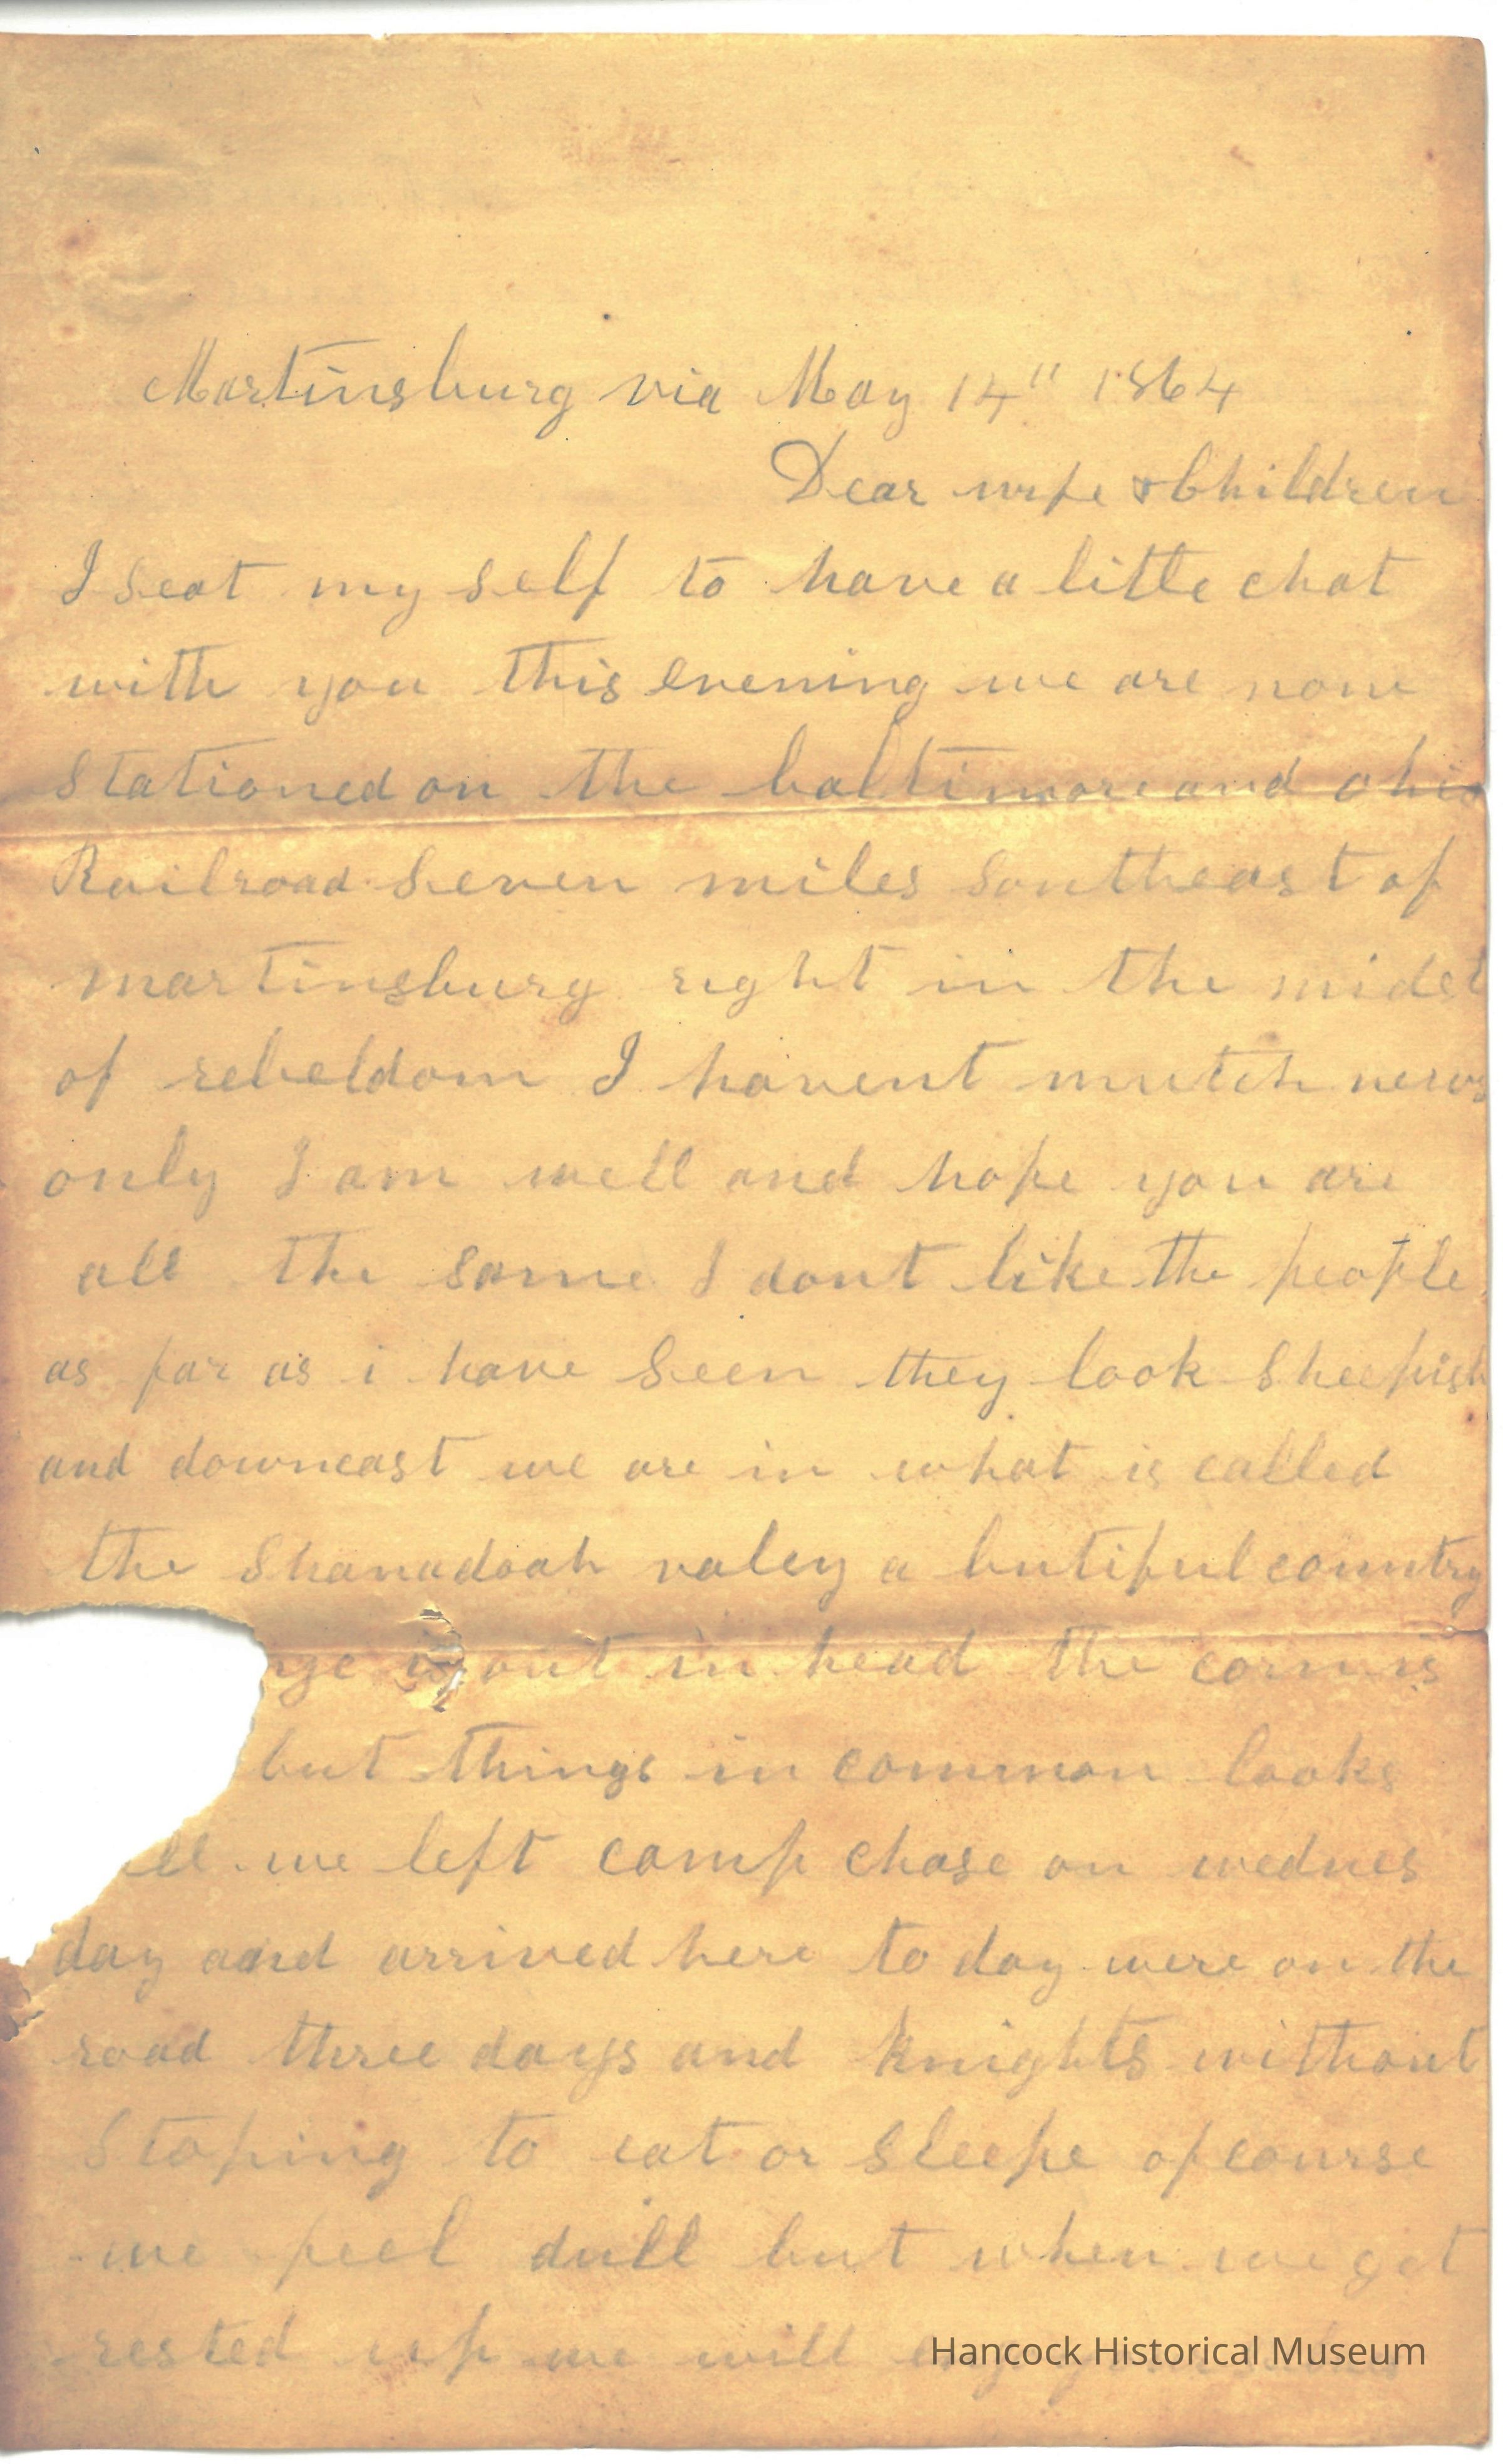 Martinsburg via May 14" 1864
Dear wife & Children
I seat my self to have a little chat
with you this evening we are now
Stationed on the baltimore and ohio
Railroad Seven miles Southeast of
martinsburg right in the midst
of rebeldom I havent mutch news
only I am well and hope you are
all the same I dont like the people
as far as i have Seen they look Sheepish
and downcast we are in what is called
the Shanadoah valey a butiful country
out in head the corn is
but things in common looks
we left camp chase on wednes
day and arrived here to day were on the
road three days and knights without
Stoping to eat or sleepe of course
we feel dull but when we get
rested up we will
Hancock Historical Museum